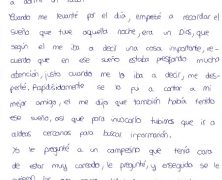 a dormir un rato.
Cuando me levanté por el día, empecé a recordar el
sueño que tuve aquella noche, era un Dios, que
según él me iba a decir una cosa importante, re-
cuerdo que en ese sueño estaba prestando mucha
atención, justo cuando me lo iba a decir, me des-
perté. Rapidisidamente se lo fui a contar a mi
mejor amigo, el me dijo que también había tenido
ese sueño, así que para invocarlo tubimos que ir a
aldeas cercanas para buscar información.
Yo le pregunté a un campesino que tenía cara
de estar muy cansado, le pregunté, y enseguida se le